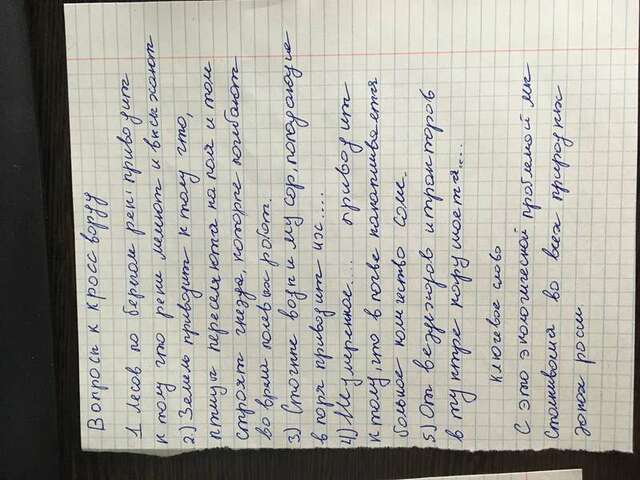 Вопросы к кроссворду
1 Лесов по берегам рек: приводит
к тому что реки мелиют и высыхают
2.) Земель приводит к тому что,
птицы переселяюта на поля и там
строят гнезда, которые погибают
во время полевых работ.
3) Стогные воды и мусор, попадающие
в моря приводит их....
4) Неумеренное.... приводит
к тому, что в почве накапливается
большое количество соле.
5) От вездеходов и тракторов
в тунтре нарушаета....
Ключевое слово
С это экологической проблемой мы
сталкиваемя во всех природных
зонах росии